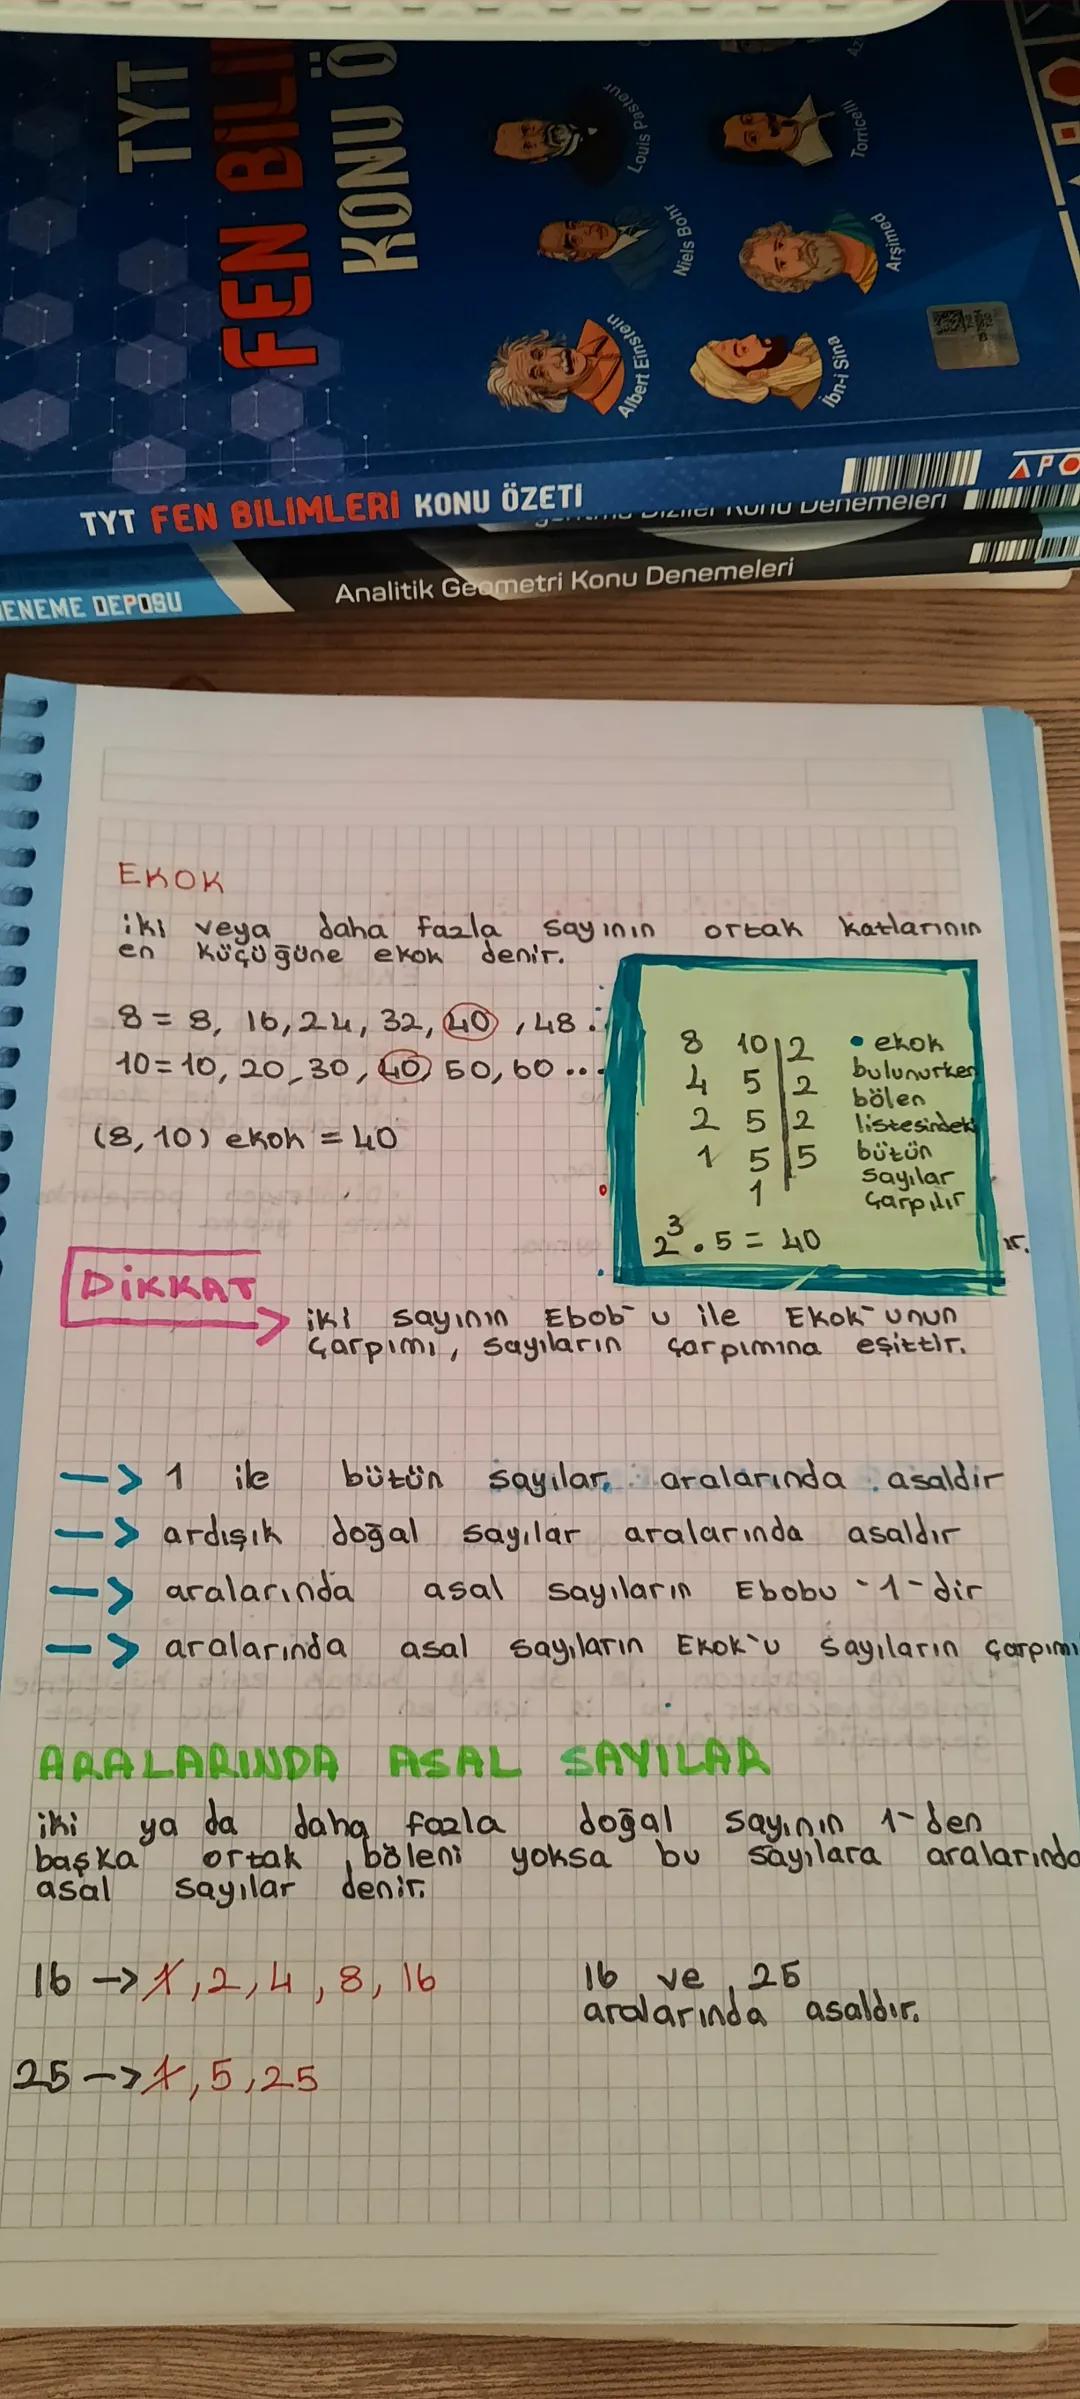 TYT
FEN BİLİ
KONU Ö
Louis Pasteur
Torricelli
Niels Bohr
Arşimed
Albert Einstein
İbn-i Sina
TYT FEN BİLİMLERİ KONU ÖZETİ
Diziler Konu Denemeleri
DENEME DEPOSU
Analitik Geometri Konu Denemeleri
EKOK
iki veya daha fazla sayının ortak katlarının
en küçüğüne ekok denir.
8 = 8, 16, 24, 32, 40, 48 ..
10 = 10, 20, 30, 40, 50, 60 ...
(8, 10) ekok = 40
8 10 | 2
4 5 | 2
2 5 | 2
1 5 | 5
1
2³ . 5 = 40
• ekok
bulunurken
bölen
listesindeki
bütün
sayılar
çarpılır
DİKKAT
iki sayının Ebob-u ile Ekok-unun
çarpımı, sayıların çarpımına eşittir.
—> 1 ile bütün sayılar aralarında asaldır
—> ardışık doğal sayılar aralarında asaldır
—> aralarında asal sayıların Ebobu -1-dir
—> aralarında asal sayıların Ekok'u sayıların çarpımı
ARALARINDA ASAL SAYILAR
iki ya da daha fazla doğal sayının 1-den
başka ortak böleni yoksa bu sayılara aralarında
asal sayılar denir.
16 -> 1, 2, 4, 8, 16
16 ve 25
aralarında asaldır.
25 -> 1, 5, 25